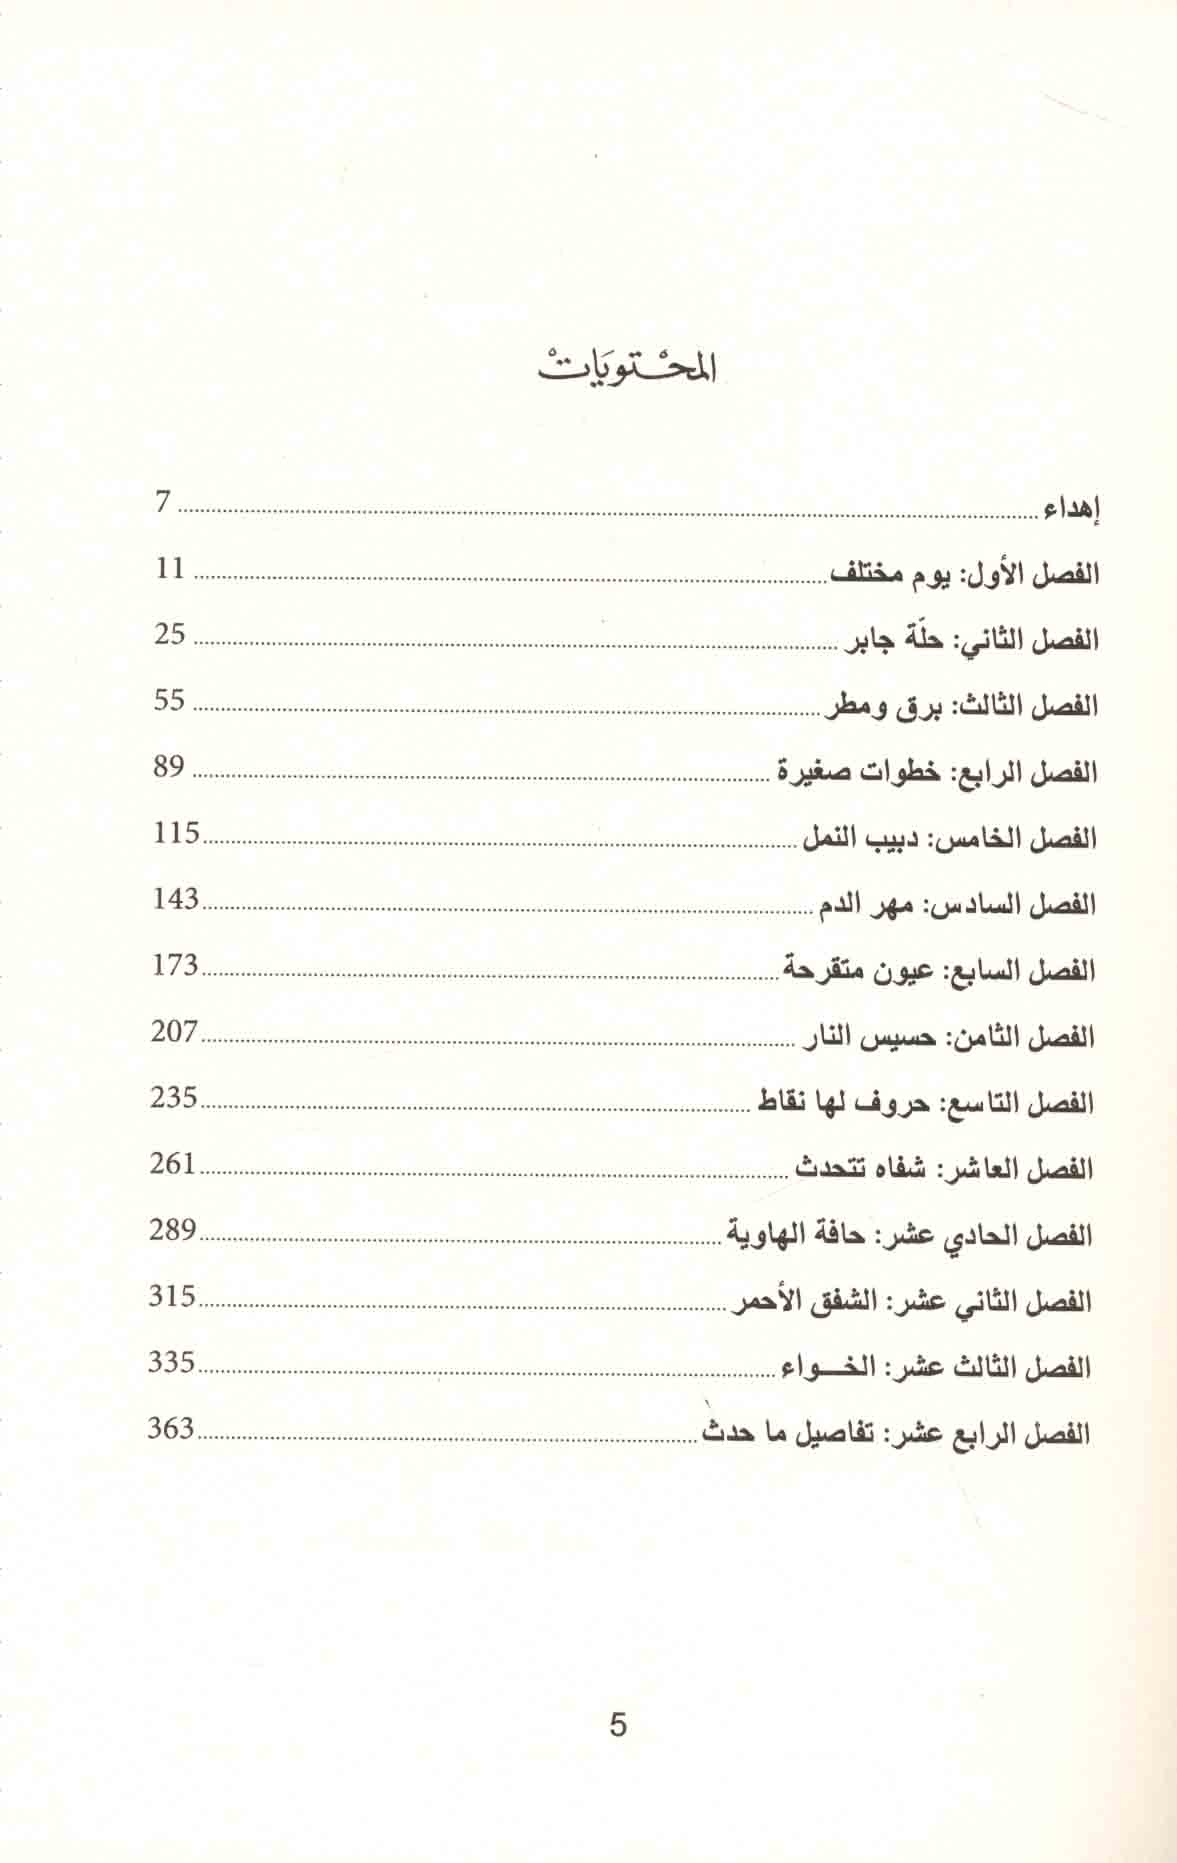 المحْتويَاتْ
إهداء ........ 7
الفصل الأول: يوم مختلف ........ 11
الفصل الثاني: حلّة جابر ........ 25
الفصل الثالث: برق ومطر ........ 55
الفصل الرابع: خطوات صغيرة ........ 89
الفصل الخامس: دبيب النمل ........ 115
الفصل السادس: مهر الدم ........ 143
الفصل السابع: عيون متقرحة ........ 173
الفصل الثامن: حسيس النار ........ 207
الفصل التاسع: حروف لها نقاط ........ 235
الفصل العاشر: شفاه تتحدث ........ 261
الفصل الحادي عشر: حافة الهاوية ........ 289
الفصل الثاني عشر: الشفق الأحمر ........ 315
الفصل الثالث عشر: الخـــواء ........ 335
الفصل الرابع عشر: تفاصيل ما حدث ........ 363
5